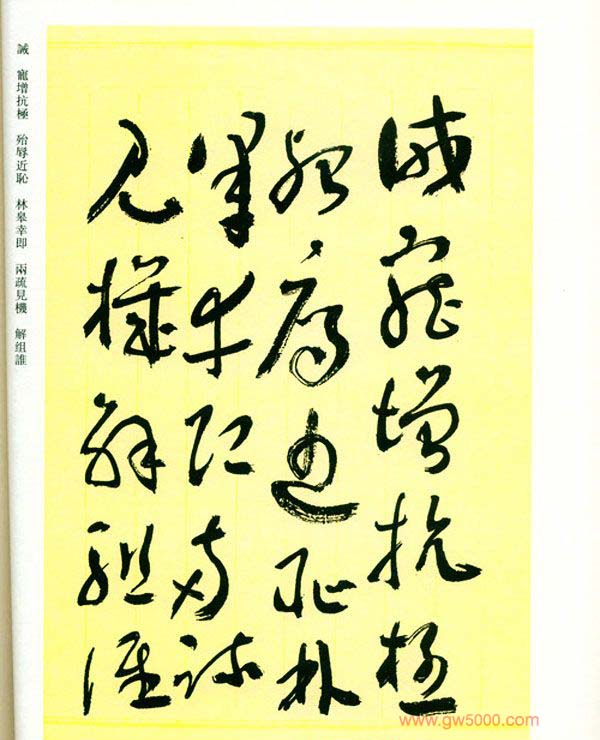 誡寵增抗極
殆辱近恥林
皋幸即兩疏
見機解組誰
誡 寵增抗極 殆辱近恥 林皋幸即 兩疏見機 解组誰
www.gw5000.com